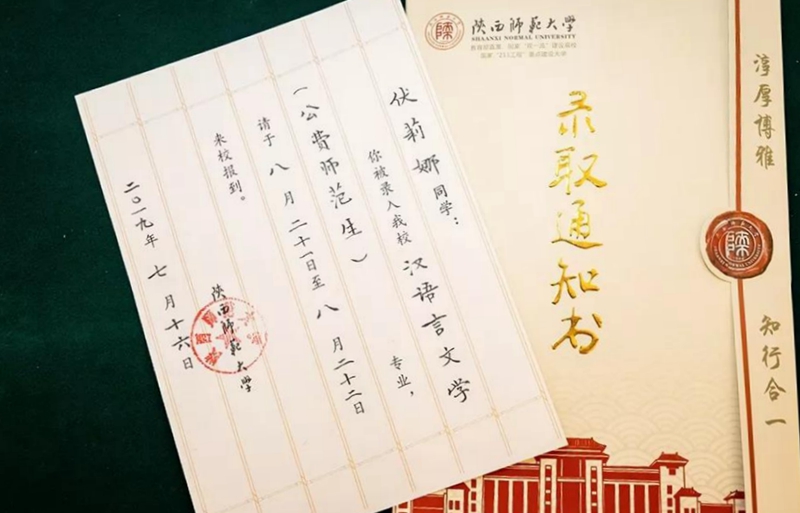 伏莉娜同学：
你被录入我校汉语言文学专业，
（公费师范生）
请于八月二十一日至八月二十二日
来校报到。
陕西师范大学
二〇一九年七月十六日
陕西师范大学
SHAANXI NORMAL UNIVERSITY
教育部直属 国家“双一流”建设高校
国家“211工程”重点建设大学
录取通知书
淳厚博雅
知行合一